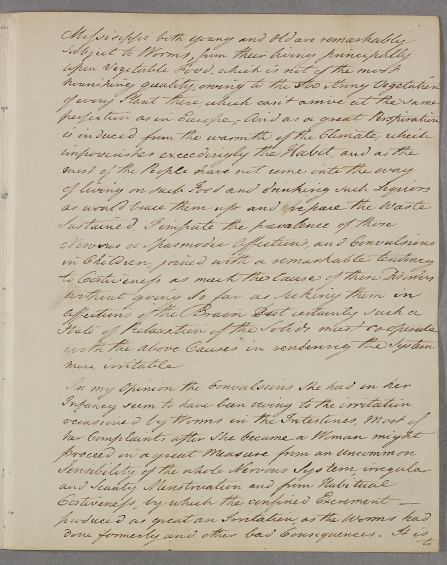 Mississippi both young and Old are remarkably
Subject to Worms, from their living principally
upon Vegetable Food, which is not of the most
nourishing quality, owing to the too strong Vegetation
of every Plant there, which can't arrive at the same
perfection as in Europe. And as a great Perspiration
is induced from the warmth of the Climate, which
impoverishes exceedingly the Habit, and as the
most of the People have not come into the way
of living on such Food and drinking such Liquors
as would brace them up and repair the Waste
Sustained I impute the prevalence of those
Nervous or Spasmodic Affections, and Convulsions
in Children, joined with a remarkable tendency
to Costiveness as much the Cause of those Disorders
without going so far as seeking them in
affections of the Brain But certainly such a
State of Relaxation of the Solids must co-operate
with the above Causes in rendering the System
more irritable
In my Opinion the Convulsions She had in her
Infancy seem to have been owing to the irritation
occasioned by Worms in the Intestines, Most of
her Complaints after She became a Woman might
proceed in a great Measure from an uncommon
Sensibility of the whole Nervous System, irregular
and Scanty Menstruation and from Habitual
Costiveness, by which the confined Excrement —
produced as great an Irritation, as the Worms had
done formerly and other bad Consequences. It is
to